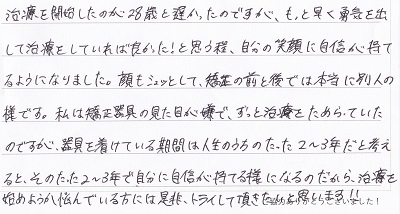 治療を開始したのが28歳と遅かったのですが、もっと早く勇気を出
して治療をしていれば良かった！と思う程、自分の笑顔に自信が持て
るようになりました。顔もシュッとして、矯正の前と後では本当に別人の
様です。私は矯正器具の見た目が嫌で、ずっと治療をためらっていた
のですが、器具を着けている期間は人生のうちのたった2〜3年だと考え
ると、そのたった2〜3年で自分に自信が持てる様になるのだから、治療を
始めようか悩んでいる方には是非、トライして頂きたいと思います!!
ありがとうございました！